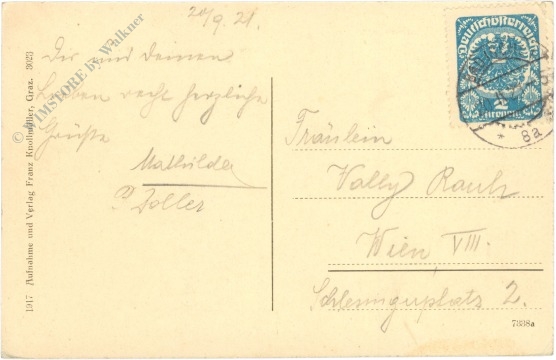 20/9. 21.
Dir und deinen
Lieben recht herzliche
Grüße
Mathilde
Zoller
© FILMSTORE by Walkner
1917 Aufnahme und Verlag Franz Knollmüller, Graz. 3023
Deutschösterreich
2
Kronen
8a
Fräulein
Vally Rauh
Wien, VIII.
Schlesingerplatz 2.
7898a